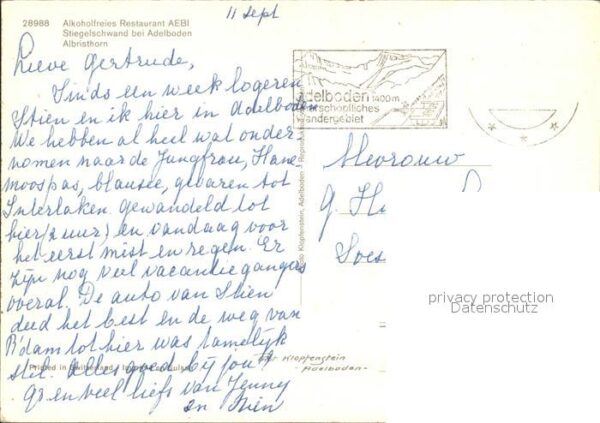 28988 Alkoholfreies Restaurant AEBI
Stiegelschwand bei Adelboden
Albristhorn
11 Sept
Lieve Gertrude,
Sinds een week logeren
Stien en ik hier in Adelboden
We hebben al heel wat onder-
nomen naar de Jungfrau, Hane
moospas, blausee, gevaren tot
Interlaken. gewandeld tot
hier (2 uur) en vandaag voor
het eerst mist en regen. Er
zijn nog veel vacantiegangers
overal. De auto van Stien
deed het best en de weg van
R'dam tot hier was tamelijk
stil. Alles goed bij jou?
Gr en veel liefs van Jenny
en Stien
Adelboden 1400m
schönliches
andergebiet
Klopfenstein, Adelboden
Mevrouw
G. H
Soes
privacy protection
Datenschutz
Klopfenstein
- Adelboden -
Printed in Switzerland